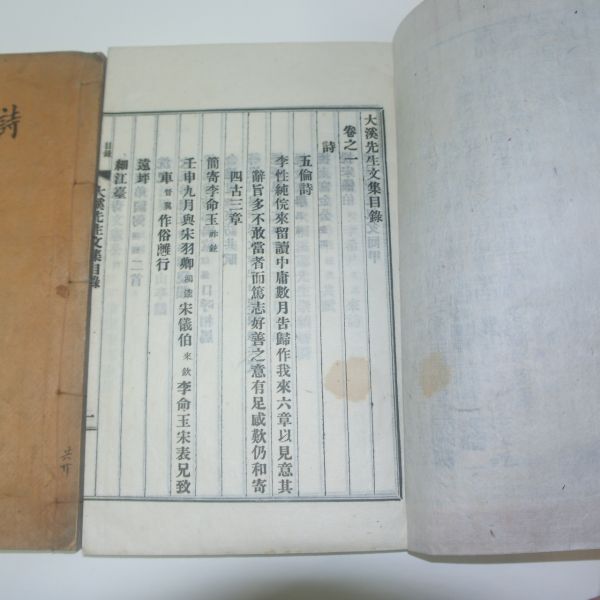 大溪先生文集目錄
卷之一
詩
五倫詩
李性純倧來留讀中庸數月告歸作我來六章以見意其
辭旨多不敢當者而篤志好善之意有足感歎仍和寄
四古三章
簡寄李命玉
壬申九月與宋羽卿 宋儀伯 來欽 李命玉宋表兄致
車 作俗離行
遠 二首
細江臺
目錄
大溪先生文集目錄
一
詩